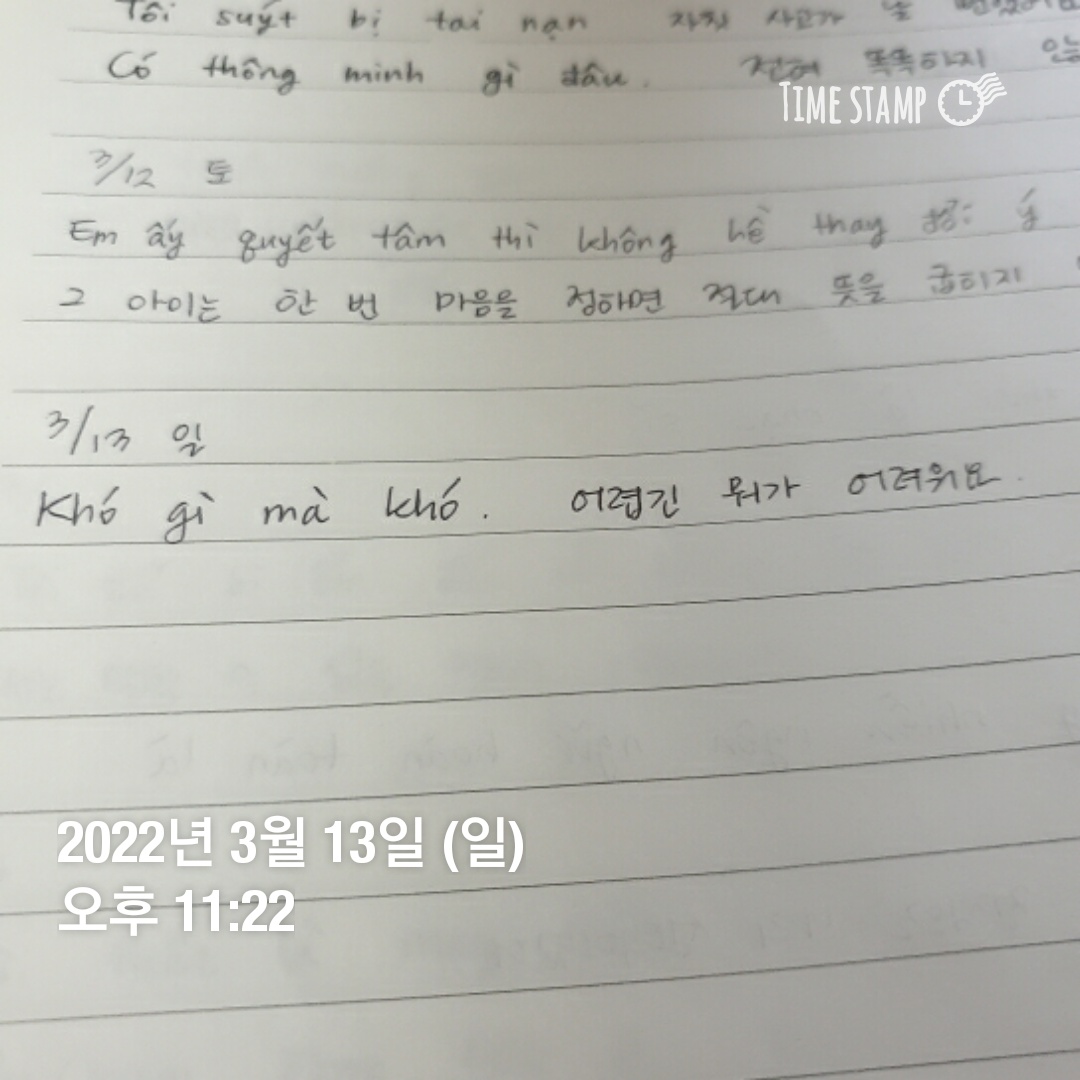 Tôi suýt bị tai nạn 자칫 사고가 날 뻔했어요
Có thông minh gì đâu. 전혀 똑똑하지 않
TIME STAMP
3/12 토
Em ấy quyết tâm thì không hề thay đổi ý
그 아이는 한 번 마음을 정하면 절대 뜻을 굽히지
3/13 일
Khó gì mà khó. 어렵긴 뭐가 어려워요.
2022년 3월 13일 (일)
오후 11:22